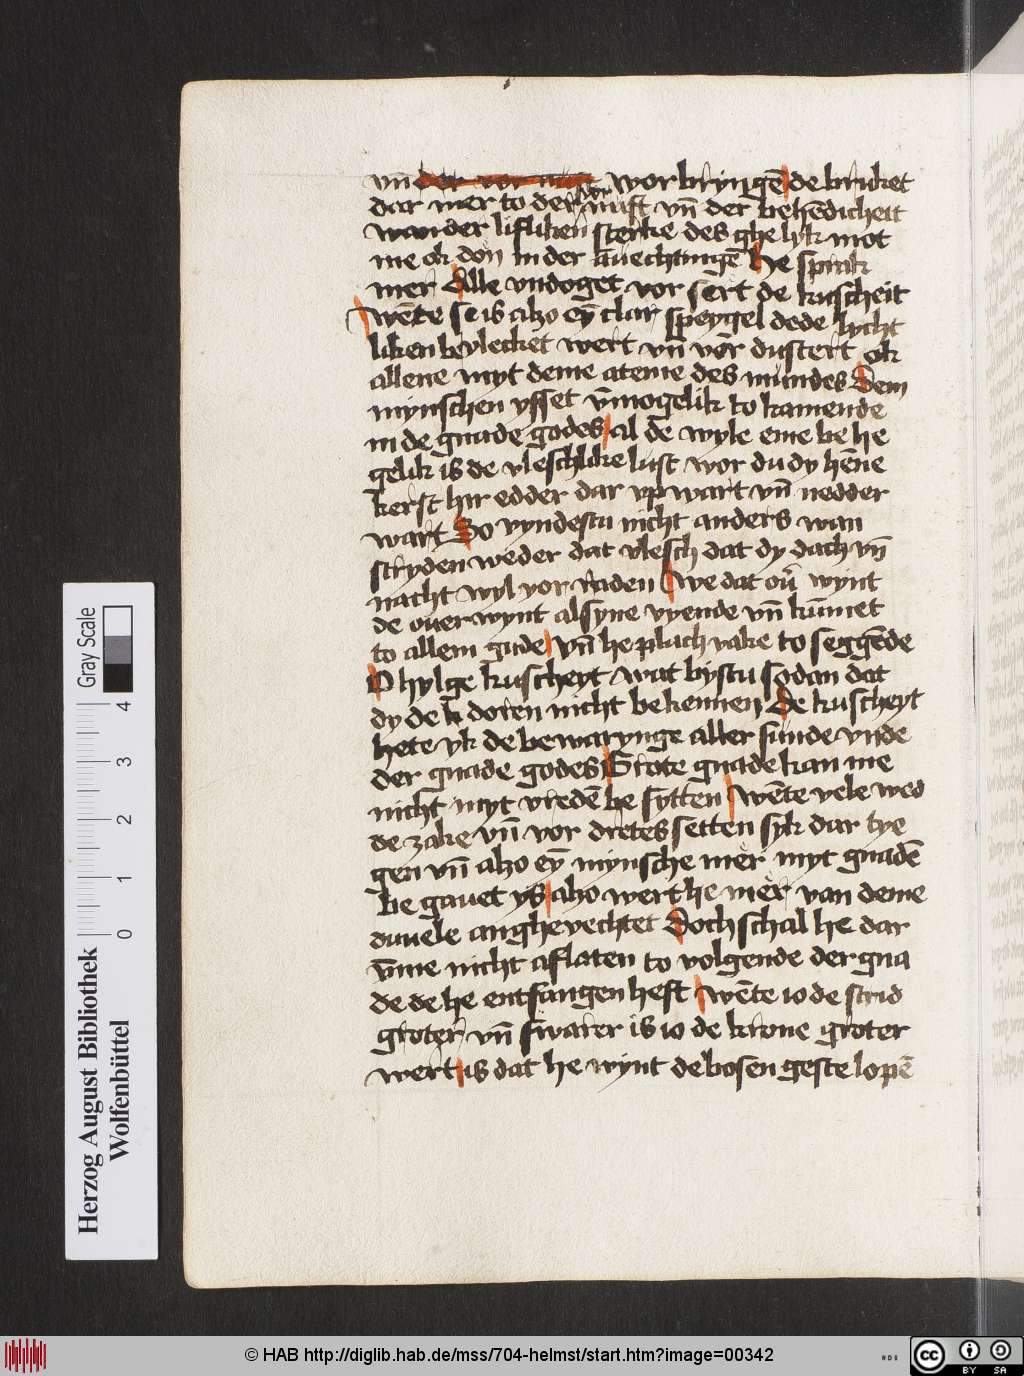 vn̄ der vor nuft vorbryngē de bruket
dar mer to der vornuft vn̄ der behēdicheit
wan der lifliken sterke des ghelyk mot
me ok don in der anuechtungē he sprak
mer Alle vndoget vorsert de kuscheit
wēte se is alzo eȳ clar speygel de de lycht
liken bevlecket wert vn̄ vor dustert ok
allene myt deme ateme des mundes Dem
mynschen ysset vm̄ogelik to kamende
in de gnade godes al de wyle eme behe
gelik is de vleschlike lust wor du dy hēne
kerst hir edder dar vpwart vn̄ nedder
wart So vyndestu nicht anders wan
stryden weder dat vlesch dat dy dach vn̄
nacht wyl vorraden we dat ou̅ wynt
de ouerwynt al syne vyende vn̄ kūmet
to allem gude vn̄ he plach vake to seggēde
O hylge kuscheyt wat bystu sodan dat
dy de k doren nicht bekennen De kuscheyt
hete yk de bewarynge aller sunde vnde
der gnade godes Grote gnade kan me
nicht myt vredē besytten wēte vele wed
de zake vn̄ vordretes setten syk dar tye
gen vn̄ alzo eȳ mynsche mer myt gnadē
begauet ys alzo wert he mer van deme
duuele anghevechtet Doch schal he dar
vm̄e nicht aflaten to volgende der gna
de de he entfangen heft wēte io de strid
groter vn̄ swarer is io de krone groter
wert is dat he wynt de bosen geste lopē
Gray Scale
0 1 2 3 4
Herzog August Bibliothek
Wolfenbüttel
© HAB http://diglib.hab.de/mss/704-helmst/start.htm?image=00342
cc BY SA